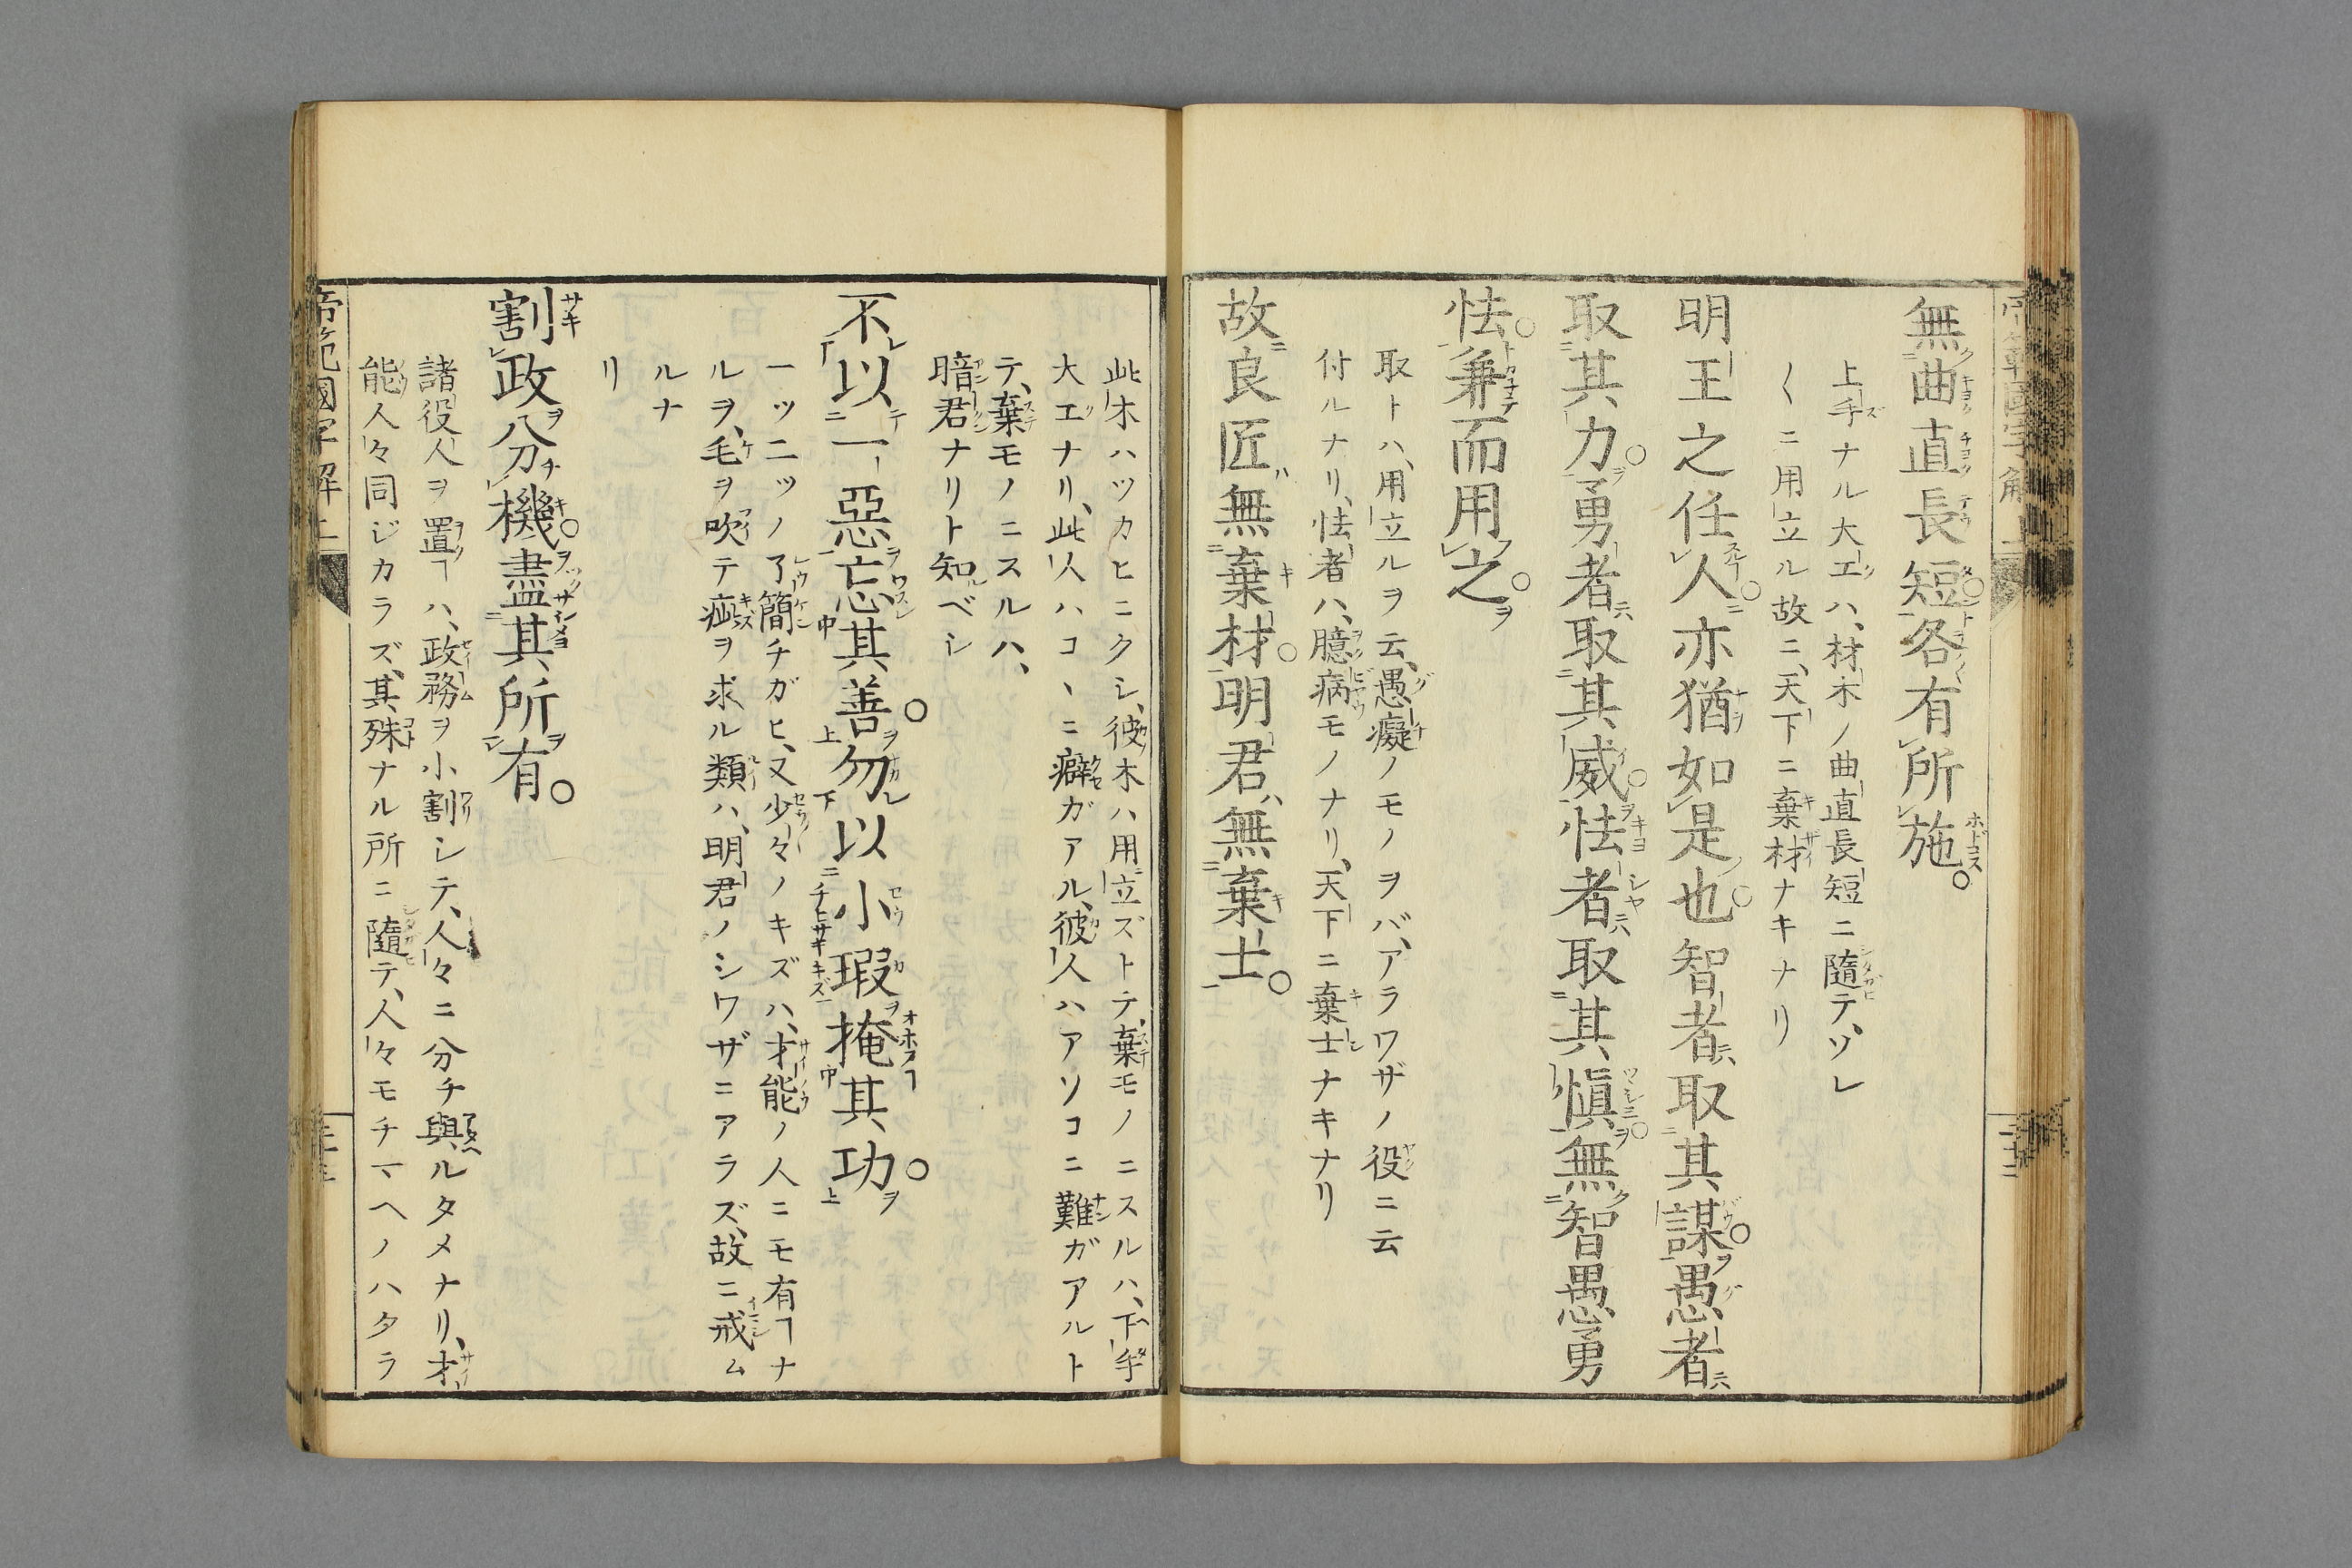 無曲直長短各有所施。
上手ナル大工ハ、材木ノ曲直長短ニ隨テ、ソレ
〱ニ用立ル故ニ、天下ニ棄材ナキナリ
明王之任人。亦猶如是也。智者取其謀。愚者
取其力。勇者取其威。怯者取其愼。無智愚勇
怯。兼而用之。
取トハ、用立ルヲ云、愚癡ノモノヲバ、アラワザノ役ニ云
付ルナリ、怯者ハ、臆病モノナリ、天下ニ棄士ナキナリ
故良匠無棄材。明君無棄士。
此木ハツカヒニクシ、彼木ハ用立ズトテ、棄モノニスルハ、下手
大工ナリ、此人ハコヽニ癖ガアル、彼人ハアソコニ難ガアルト
テ、棄モノニスルハ、
暗君ナリト知ベシ
不以一惡忘其善。勿以小瑕掩其功。
一ツ二ツノ了簡チガヒ、又少々ノキズハ、才能ノ人ニモ有ヿナ
ルヲ、毛ヲ吹テ疵ヲ求ル類ハ、明君ノシワザニアラズ、故ニ戒ム
ルナ
リ
割政分機。盡其所有。
諸役人ヲ置ヿハ、政務ヲ小割シテ、人々ニ分チ與ルタメナリ、才
能人々同ジカラズ、其殊ナル所ニ隨テ、人々モチマヘノハタラ
帝範國字解上